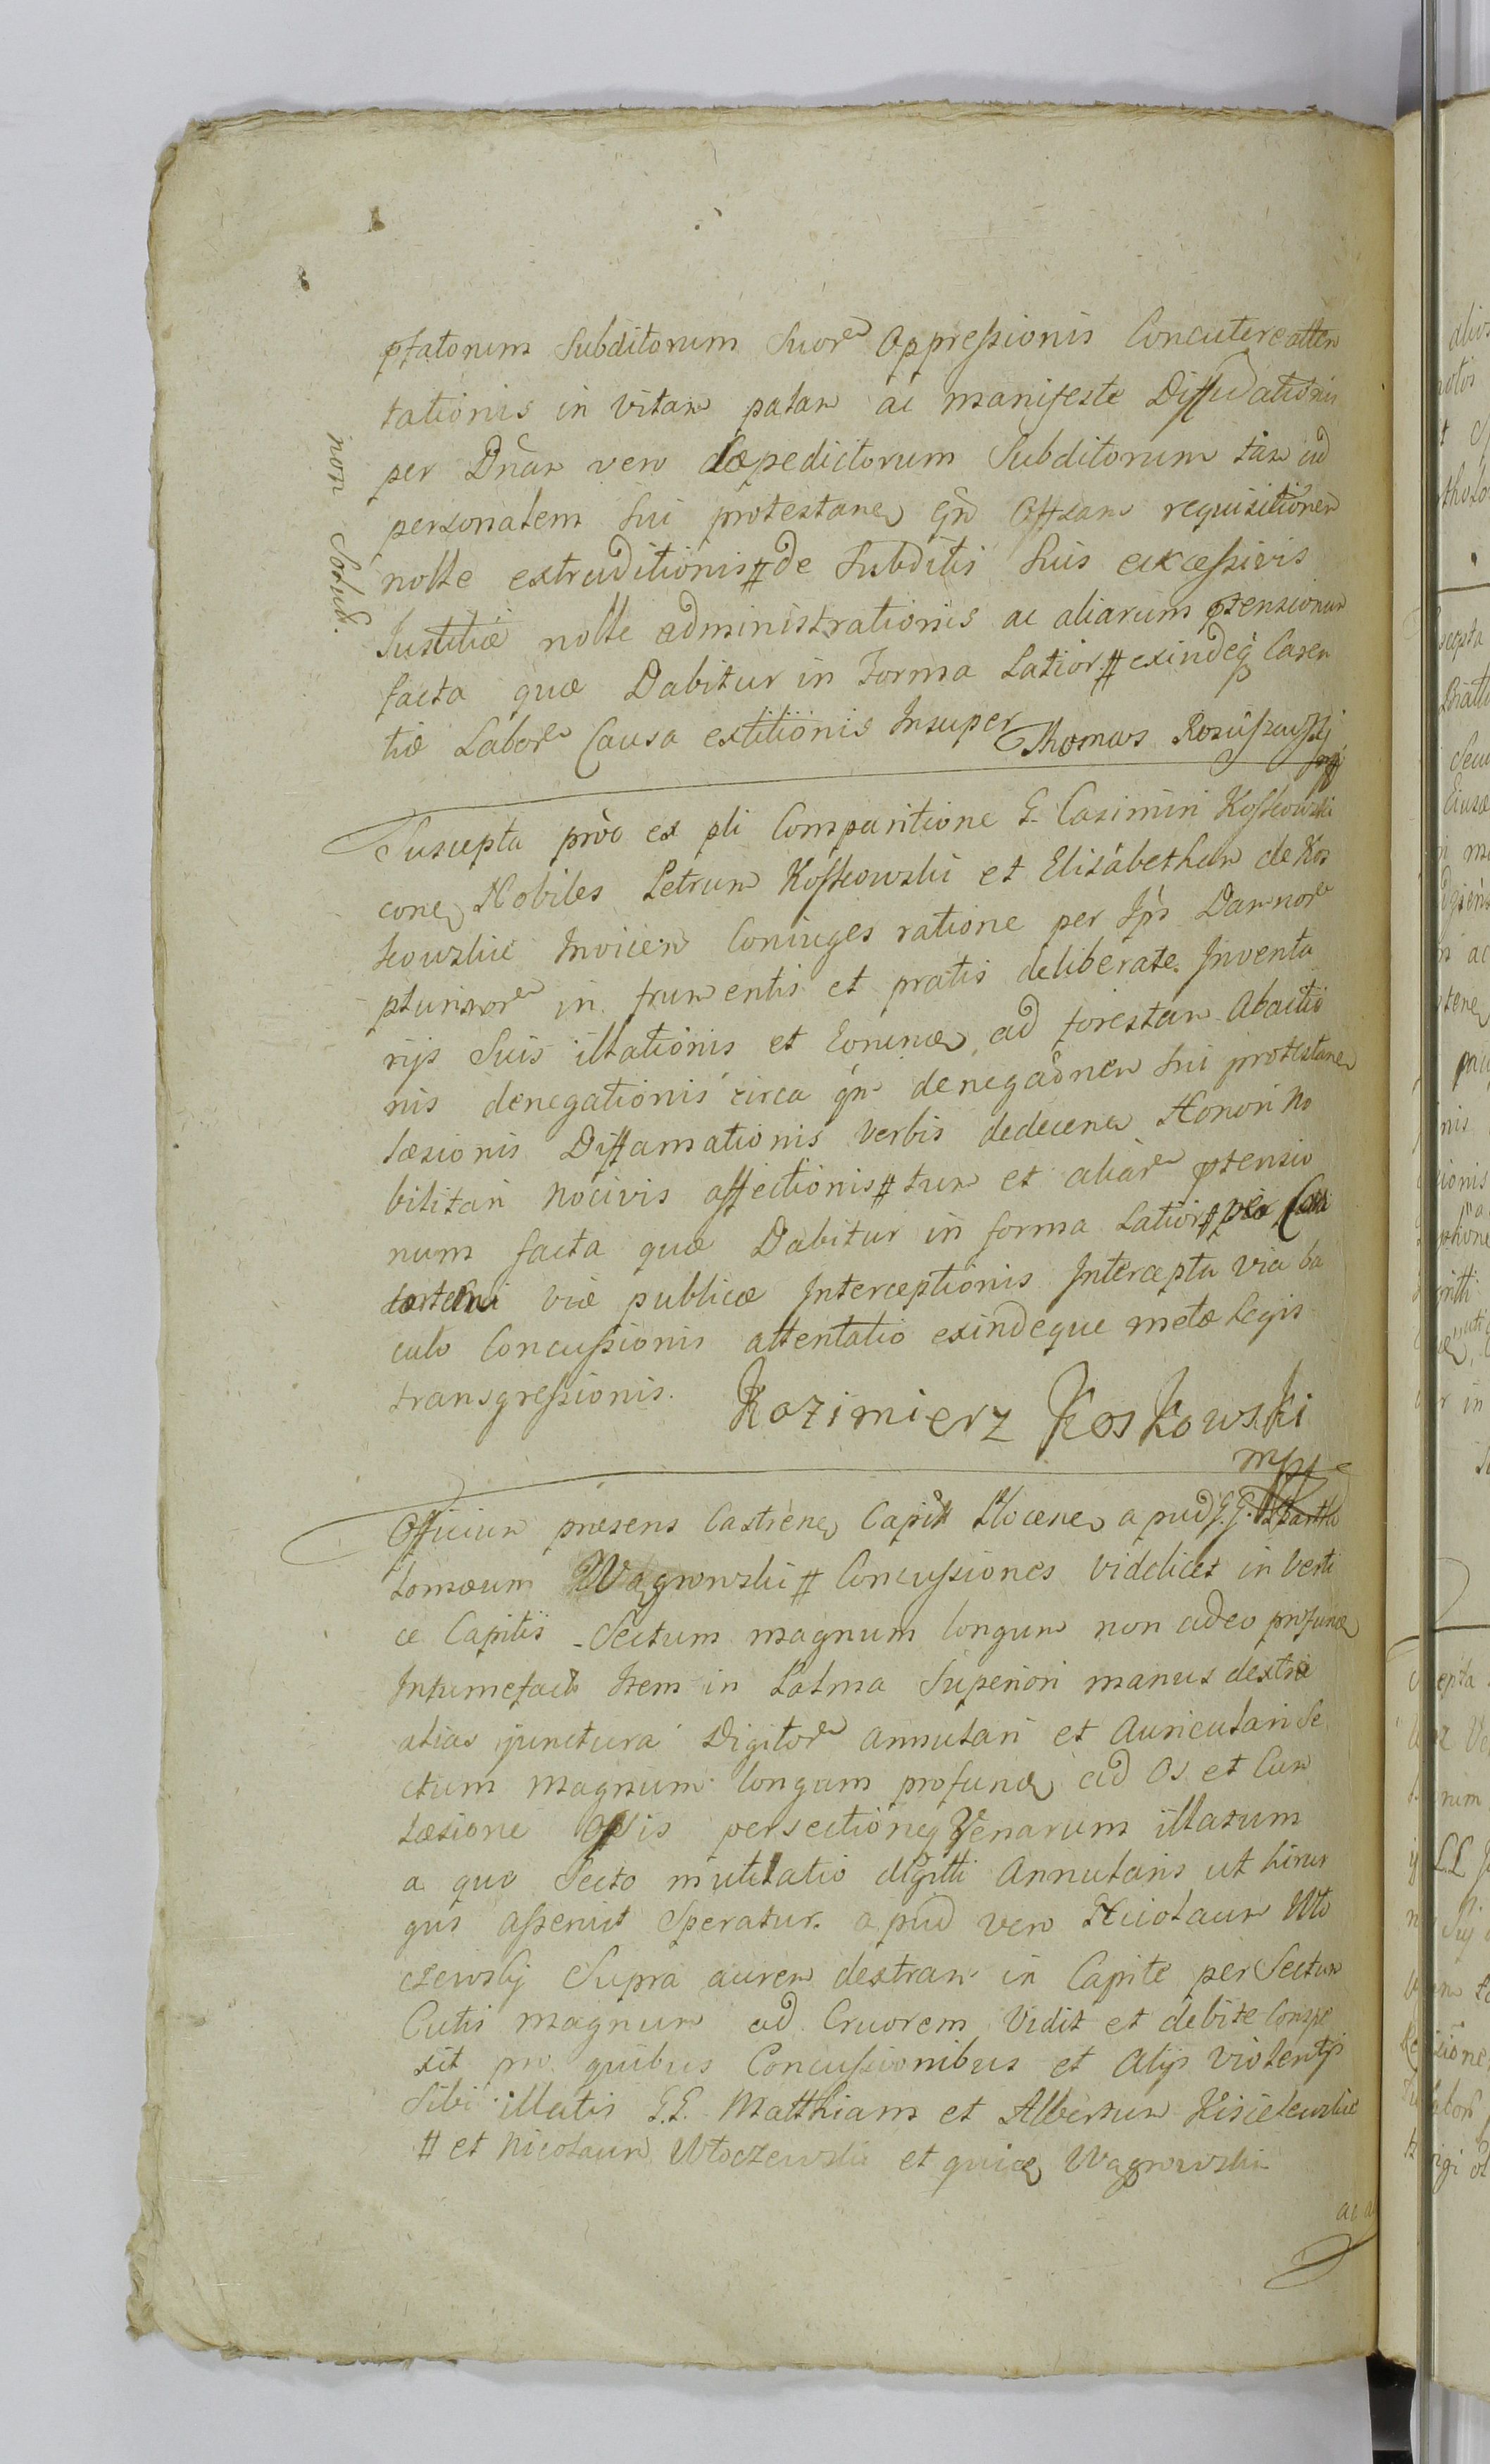 ptatorum Subditorum Suor Oppressionis Concutere atten
tationis in vitam palam ac manifeste Diffidationis
per Dnam vero depedictorum Subditorum tam ad
personalem Sui protestanes qm Offsam requisitionem
nolle extraditionis # de Subditis Suis excessivis
Justitiæ nolle administrationis ac aliarum ptensionum
facta quæ Dabitur in Forma Latior # exindeq Caren
tiæ Labor Causa extitionis Insuper
Thomas
non Solut.
Suscepta pro ex pli Comparitione G. Casimiri Kosskowski
cone Nobiles Petrum Kosskowski et Elisabetham de Kos
kowskie Invicem Coniuges ratione per Ips Damnor
plurimor in frumentis et pratis deliberate Inventa
rijs Suis illationis et Eorunde ad forestam Abactio
nis denegationis circa qm denegaonem Sui protestane
læsionis Diffamationis verbis dedecene Honori No
bilitari nocivis affectionis # tum et aliar ptensio
num facta quæ Dabitur in forma Latior #
viæ publicæ Interceptionis Intercepta via ba
culo Concussionis attentatio exindeque metæ Legis
transgressionis.
Kazimierz Koskowski
mpp
Officium præsens Castrene Capit Plocene apud G.G. Bartho
lomæum Wagrowski # Concussiones videlicet in Verti
ce Capitis Sectum magnum longum non adeo profund
Intumefact Item in Palma Superiori manus dextræ
alias junctura Digitor annulari et Auriculari Se
ctum magnum longum profund ad Os et Cum
læsione Ossis persectioneq Venarum illatum
a quo Secto mutilatio digitti Annularis ut hirur
gus asseruit Speratur. apud vero Nicolaum Wło
czewskij Supra aurem dextram in Capite per Sectum
Cutis magnum ad Cruorem Vidit et debite Conspe
xit pro quibus Concussionibus et alijs violentijs
Sibi illatis G.G. Matthiam et Albertum Kisielewskie
# et Nicolaum Włoczewski et quide Wagrowskim